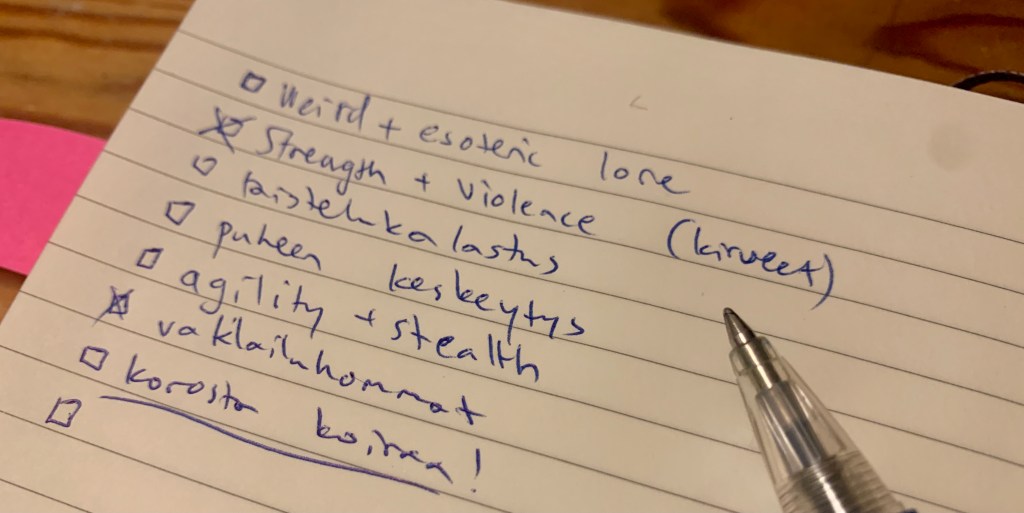 Weird + esoteric lore
Strength + violence (kirveet)
taistelukalastus
puheen keskeytys
agility + stealth
vakoiluhommat
korosta koiraa!